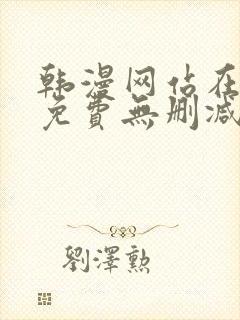 韩漫网站在
免費無删减
劉澤勲